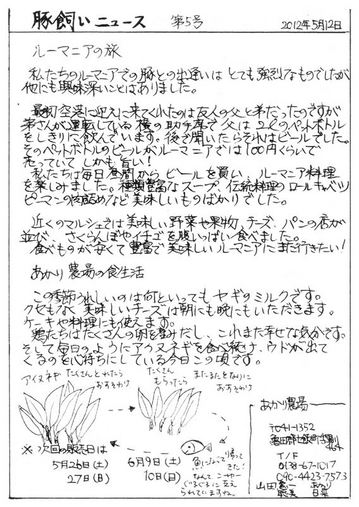 豚飼いニュース 第5号 2012年5月12日
ルーマニアの旅
私たちのルーマニアでの豚との出逢いはとても強烈なものでしたが
他にも興味深いことはありました。
最初空港に迎えに来てくれたのは友人の父と弟だったのですが
弟さんが運転している横の助手席で父は2ℓのペットボトル
をしきりに飲んでいます。後で聞いたらそれはビールでした。
そのペットボトルのビールがルーマニアでは100円くらいで
売っていてしかも旨い!
私たちは毎日昼間からビールを買い、ルーマニア料理
を楽しみました。種類豊富なスープ、伝統料理のロールキャベツ
ピーマンの肉詰めなど美味しいものばかりでした。
近くのマルシェでは美味しい野菜や果物、チーズ、パンの店が
並び、さくらんぼやイチゴを腹いっぱい食べました。
食べものが安くて豊富で美味しいルーマニアにまた行きたい!
あかり農場の食生活
この季節うれしいのは何といってもヤギのミルクです。
クセもなく美味しいチーズは朝にも晩にもいただきます。
ケーキや料理にも使えます。
鶏たちはたくさんの卵を産みだし、これまた幸せな気分です。
そして毎日のようにアイヌネギを食べ続け、ウドが出て
くるのを心待ちにしている今日この頃です。
アイヌネギ
たくさんとれたら
おすそわけ
たくさん
もらったら
またまたとなりに
おすそわけ
魚になって帰って
きた!
※次回の販売日は
5月26日(土) 6月9日(土)
27(日) 10(日)
あかり農場
〒041-1352
T/F
0138-67-1017
090-4423-7573
山田憲一 あかり